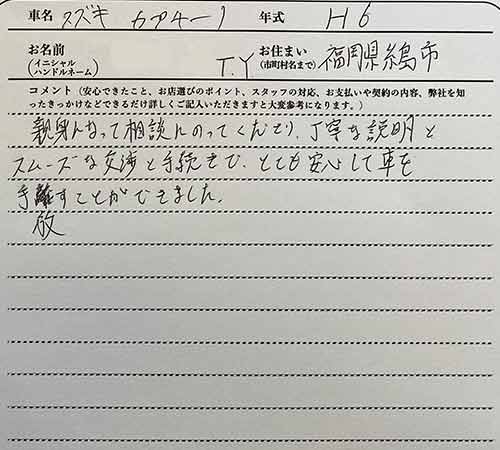 車名 スズキ カプチーノ 年式 H6
お名前 (イニシャル ハンドルネーム) T.Y お住まい (市町村名まで) 福岡県糸島市
コメント (安心できたこと、お店選びのポイント、スタッフの対応、お支払いや契約の内容、弊社を知
ったきっかけなどできるだけ詳しくご記入いただきますと大変参考になります。)
親身になって相談にのってくださり、丁寧な説明と
スムーズな交渉と手続きで、とても安心して車を
手離すことができました。
放